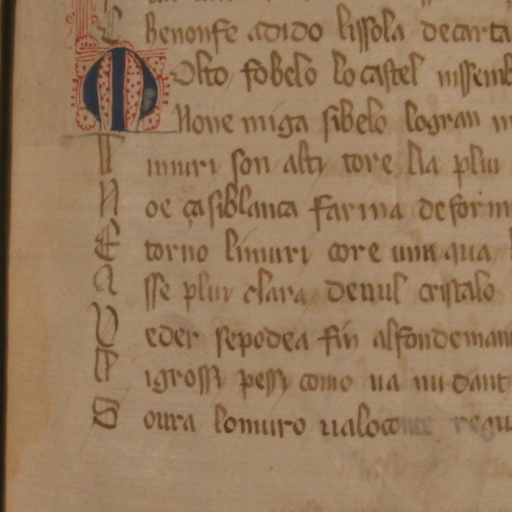 E benonse adido lissola de carta
M olto fo belo lo castel
None miga si belo lo gran
I muri son alti tore lia plui
N oe ça si blanca farina de form
E torno li muri core una qua
A sse plui clara de nul cristalo
V eder se podea fin al fonde man
I grossi pessi como ua nudant
S oura lo muro ualoconte regu